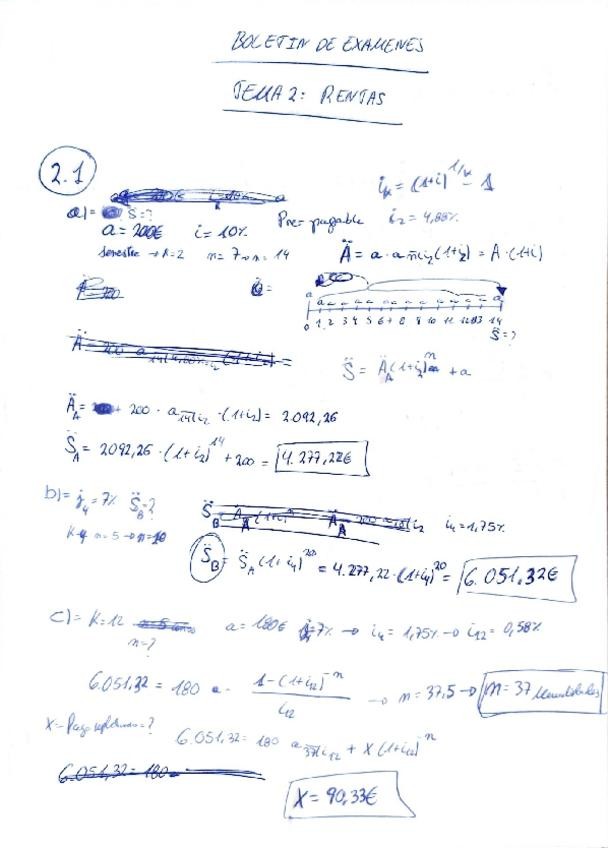 BOLETIN DE EXAMENES
TEMA 2: RENTAS
2.1
iₖ = (1+i)^1/k - 1
a)= S̈=?
a = 200€ i = 10% Pre = pagable i₂ = 4,88%
semestre → k=2 n = 7 → n = 14 Ä = a · a n̅ i₂ (1+i₂) = A · (1+i)
a a
0 1 2 3 4 5 6 7 8 9 10 11 12 13 14
S̈=?
S̈ = Ä_A (1+i₂)^n + a
Ä_A = 200 · a 14 i₂ · (1+i₂) = 2.092,26
S̈_A = 2092,26 · (1+i₂)^14 + 200 = 4.277,22€
b)= j₄ = 7% S̈_B=? i₄ = 1,75%
K=4 n=5 →
S̈_B = S̈_A (1+i₄)^20 = 4.277,22 · (1+i₄)^20 = 6.051,32€
c)= K=12 a = 180€ j=7% → i₄ = 1,75% → i₁₂ = 0,58%
n=?
6.051,32 = 180 · 1-(1+i₁₂)^-n / i₁₂ → n = 37,5 → n = 37 mensualidades
X = Pago =? 6.051,32 = 180 a 37 i₁₂ + X (1+i₁₂)^-n
X = 90,33€